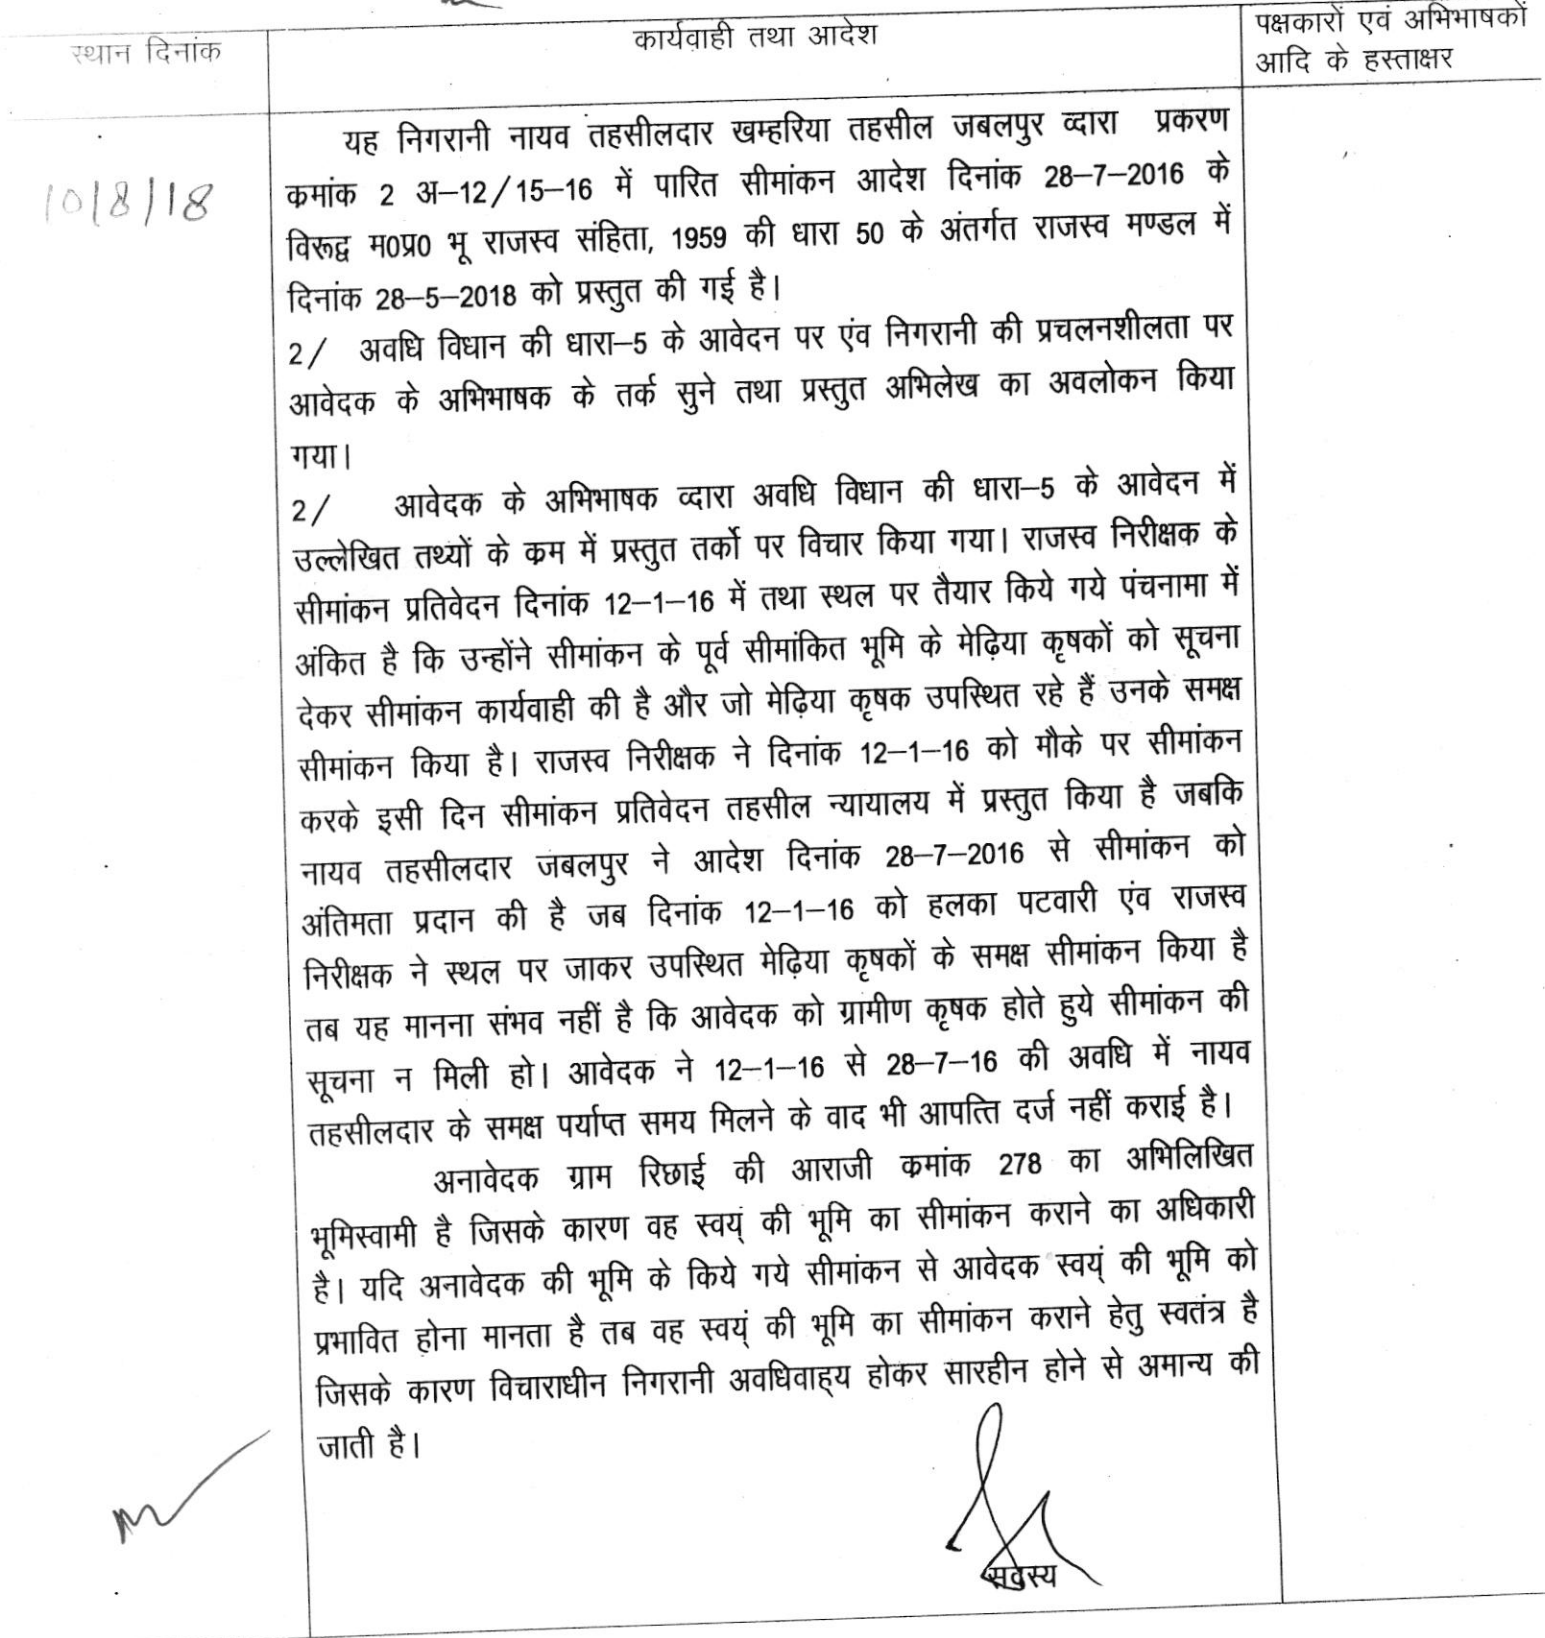 स्थान दिनांक
कार्यवाही तथा आदेश
पक्षकारों एवं अभिभाषकों
आदि के हस्ताक्षर
10/8/18
यह निगरानी नायव तहसीलदार खम्हरिया तहसील जबलपुर व्दारा प्रकरण
कमांक 2 अ–12/15–16 में पारित सीमांकन आदेश दिनांक 28–7–2016 के
विरूद्व म0प्र0 भू राजस्व संहिता, 1959 की धारा 50 के अंतर्गत राजस्व मण्डल में
दिनांक 28–5–2018 को प्रस्तुत की गई है।
2/ अवधि विधान की धारा–5 के आवेदन पर एंव निगरानी की प्रचलनशीलता पर
आवेदक के अभिभाषक के तर्क सुने तथा प्रस्तुत अभिलेख का अवलोकन किया
गया।
2/ आवेदक के अभिभाषक व्दारा अवधि विधान की धारा–5 के आवेदन में
उल्लेखित तथ्यों के कम में प्रस्तुत तर्को पर विचार किया गया। राजस्व निरीक्षक के
सीमांकन प्रतिवेदन दिनांक 12–1–16 में तथा स्थल पर तैयार किये गये पंचनामा में
अंकित है कि उन्होंने सीमांकन के पूर्व सीमांकित भूमि के मेढ़िया कृषकों को सूचना
देकर सीमांकन कार्यवाही की है और जो मेढ़िया कृषक उपस्थित रहे हैं उनके समक्ष
सीमांकन किया है। राजस्व निरीक्षक ने दिनांक 12–1–16 को मौके पर सीमांकन
करके इसी दिन सीमांकन प्रतिवेदन तहसील न्यायालय में प्रस्तुत किया है जबकि
नायव तहसीलदार जबलपुर ने आदेश दिनांक 28–7–2016 से सीमांकन को
अंतिमता प्रदान की है जब दिनांक 12–1–16 को हलका पटवारी एंव राजस्व
निरीक्षक ने स्थल पर जाकर उपस्थित मेढ़िया कृषकों के समक्ष सीमांकन किया है
तब यह मानना संभव नहीं है कि आवेदक को ग्रामीण कृषक होते हुये सीमांकन की
सूचना न मिली हो। आवेदक ने 12–1–16 से 28–7–16 की अवधि में नायव
तहसीलदार के समक्ष पर्याप्त समय मिलने के वाद भी आपत्ति दर्ज नहीं कराई है।
अनावेदक ग्राम रिछाई की आराजी कमांक 278 का अभिलिखित
भूमिस्वामी है जिसके कारण वह स्वयं की भूमि का सीमांकन कराने का अधिकारी
है। यदि अनावेदक की भूमि के किये गये सीमांकन से आवेदक स्वयं की भूमि को
प्रभावित होना मानता है तब वह स्वयं की भूमि का सीमांकन कराने हेतु स्वतंत्र है
जिसके कारण विचाराधीन निगरानी अवधिवाह्य होकर सारहीन होने से अमान्य की
जाती है।
सदस्य